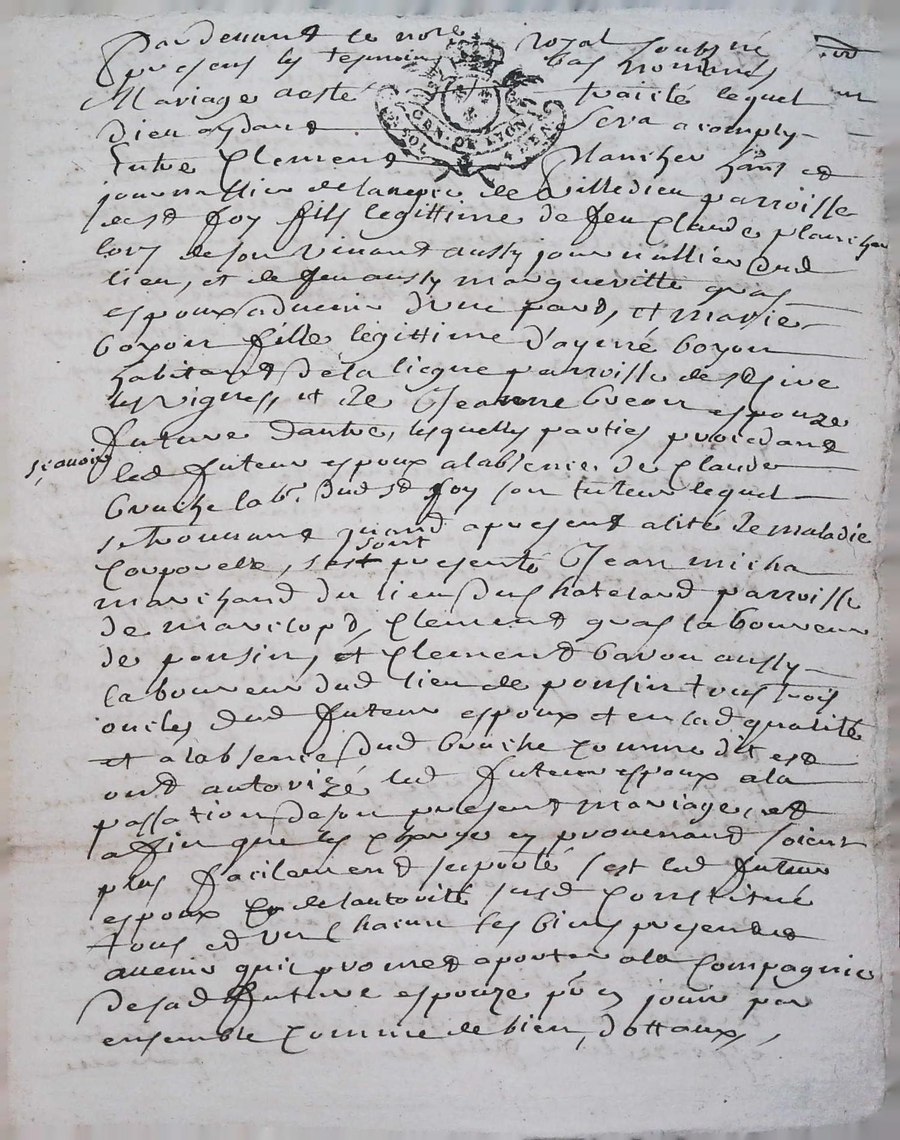 Pardevant le no.re royal soubsné
presens les tesmoins bas nommés
Mariage a esté traicté lequel
dieu aydant sera acomply
GEN. DE LYON
SOL
DEN
Entre Clement Planchez
journallier de Villedieu parroisse
de st foy fils legittime de feu Claude planchez
lors de son vivant aussy journallier dud
lieu, et de feu aussy margueritte quas
espoux advenir d'une part, et marie
boyon fille legittime d'aymé boyon
habitant de la liegue parroisse de
les vignes, et de Jeanne espouze
future d'autre, lesquelles parties procedant
sçavoir
led futeur espoux a labsence de Claude
bruche lab. dud st foy son tuteur lequel
se trouvant quand a present alité de maladie
sont
corporelle, s'est presenté Jean micha
marchand du lieu du Chatelard parroisse
de marclopt, Clement quas laboureur
de ponsins, et Clement bavou aussy
laboureur dud lieu de ponsin tous trois
oncles dud futeur espoux et en lad qualitté
et a labsence dud bruche comme dit est
ont autorizé led futeur espoux a la
passation de son present mariage, et
affin que les charge en provenant soient
plus facilement suporté s'est led futeur
espoux de lautorité susd constitué
tous et un chacun ses biens presendt et
avenir qu'il promet aporter a la compagnie
de sad future espouze p.r en jouir par
ensemble comme de bien dottaux,